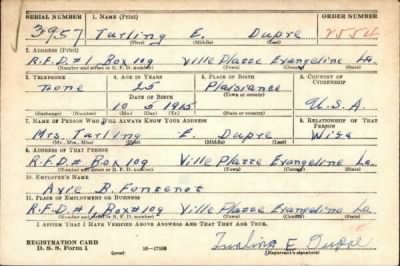 SERIAL NUMBER 1. NAME (Print) ORDER NUMBER
3957 Turling E. Dupre
(First) (Middle) (Last)
2. ADDRESS (Print)
R.F.D.#1 Box 109 Ville Platte Evangeline La.
(Number and street or R. F. D. number) (Town) (County) (State)
3. TELEPHONE 4. AGE IN YEARS 5. PLACE OF BIRTH 6. COUNTRY OF CITIZENSHIP
none 25 Plaisance
DATE OF BIRTH (Town or county)
10 5 1915 U.S.A.
(Exchange) (Number) (Mo.) (Day) (Yr.) (State or country)
7. NAME OF PERSON WHO WILL ALWAYS KNOW YOUR ADDRESS 8. RELATIONSHIP OF THAT PERSON
Mrs. Turling E. Dupre Wife
(Mr., Mrs., Miss) (First) (Middle) (Last)
9. ADDRESS OF THAT PERSON
R.F.D.# Box 109 Ville Platte Evangeline La.
(Number and street or R. F. D. number) (Town) (County) (State)
10. EMPLOYER'S NAME
B. Fonzenot
11. PLACE OF EMPLOYMENT OR BUSINESS
R.F.D.#1, Box#109 Ville Platte Evangeline La.
(Number and street or R. F. D. number) (Town) (County) (State)
I AFFIRM THAT I HAVE VERIFIED ABOVE ANSWERS AND THAT THEY ARE TRUE.
REGISTRATION CARD
D. S. S. Form 1 (over) 16—17105 Turling E Dupre
(Registrant's signature)